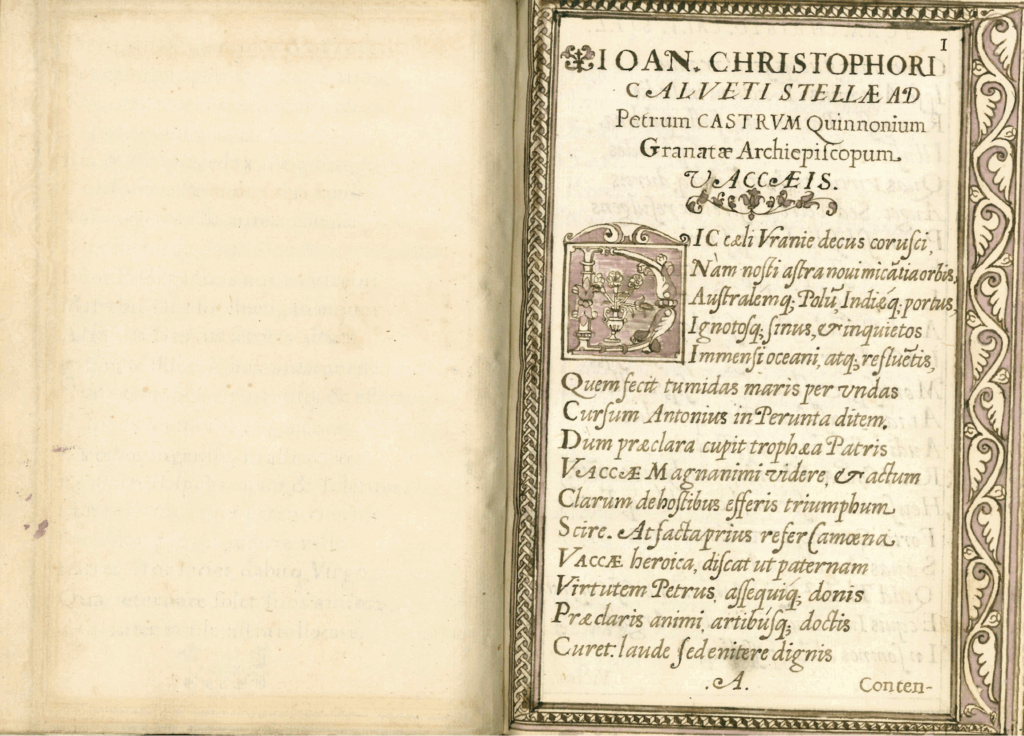 1
IOAN. CHRISTOPHORI
CALVETI STELLÆ AD
Petrum CASTRVM Quinnonium
Granatæ Archiepiſcopum
VACCÆIS.
DIC cæli Vranie decus coruſci,
Nàm noſti aſtra noui micãtia orbis,
Auſtralemq; Polũ, Indiǽq; portus,
Ignotoſq; ſinus, & inquietos
Immenſi oceani, atq; refluẽtis,
Quem fecit tumidas maris per vndas
Curſum Antonius in Perunta ditem.
Dum præclara cupit trophæa Patris
VACCÆ Magnanimi videre, & actum
Clarum de hoſtibus efferis triumphum
Scire. At facta prius refer Camœna
VACCÆ heroica, diſcat ut paternam
Virtutem Petrus, aſſequiq; donis
Præclaris animi, artibúſq; doctis
Curet: laude ſed enitere dignis
.A.
Conten-